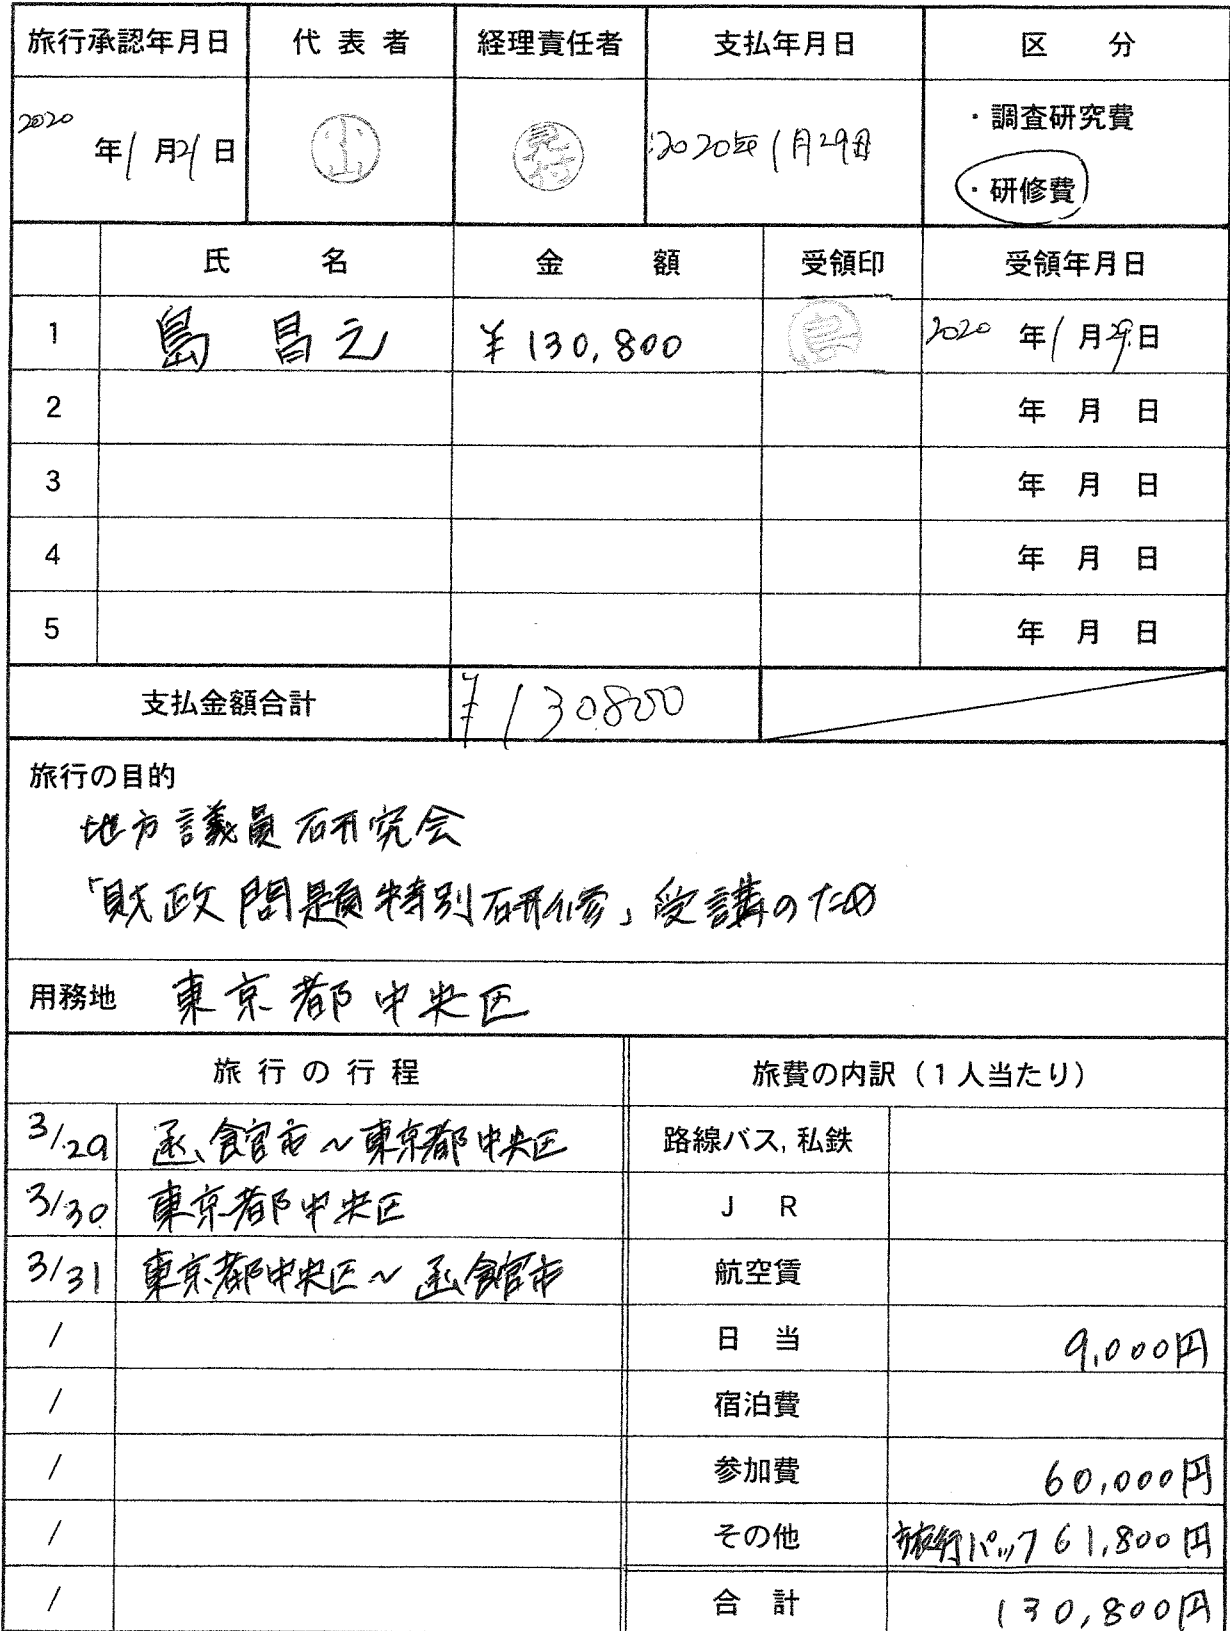 旅行承認年月日 代表者 経理責任者 支払年月日 区分
2020年1月21日 小山 見付 2020年1月29日 ・調査研究費
・研修費
氏名 金額 受領印 受領年月日
1 島 昌之 ¥130,800 島 2020年1月29日
2 年 月 日
3 年 月 日
4 年 月 日
5 年 月 日
支払金額合計 ¥130,800
旅行の目的
地方議員研究会
「財政問題特別研修」受講のため
用務地 東京都中央区
旅行の行程 旅費の内訳(1人当たり)
3/29 函館市~東京都中央区 路線バス,私鉄
3/30 東京都中央区 JR
3/31 東京都中央区~函館市 航空賃
/ 日当 9,000円
/ 宿泊費
/ 参加費 60,000円
/ その他 旅行パック61,800円
/ 合計 130,800円